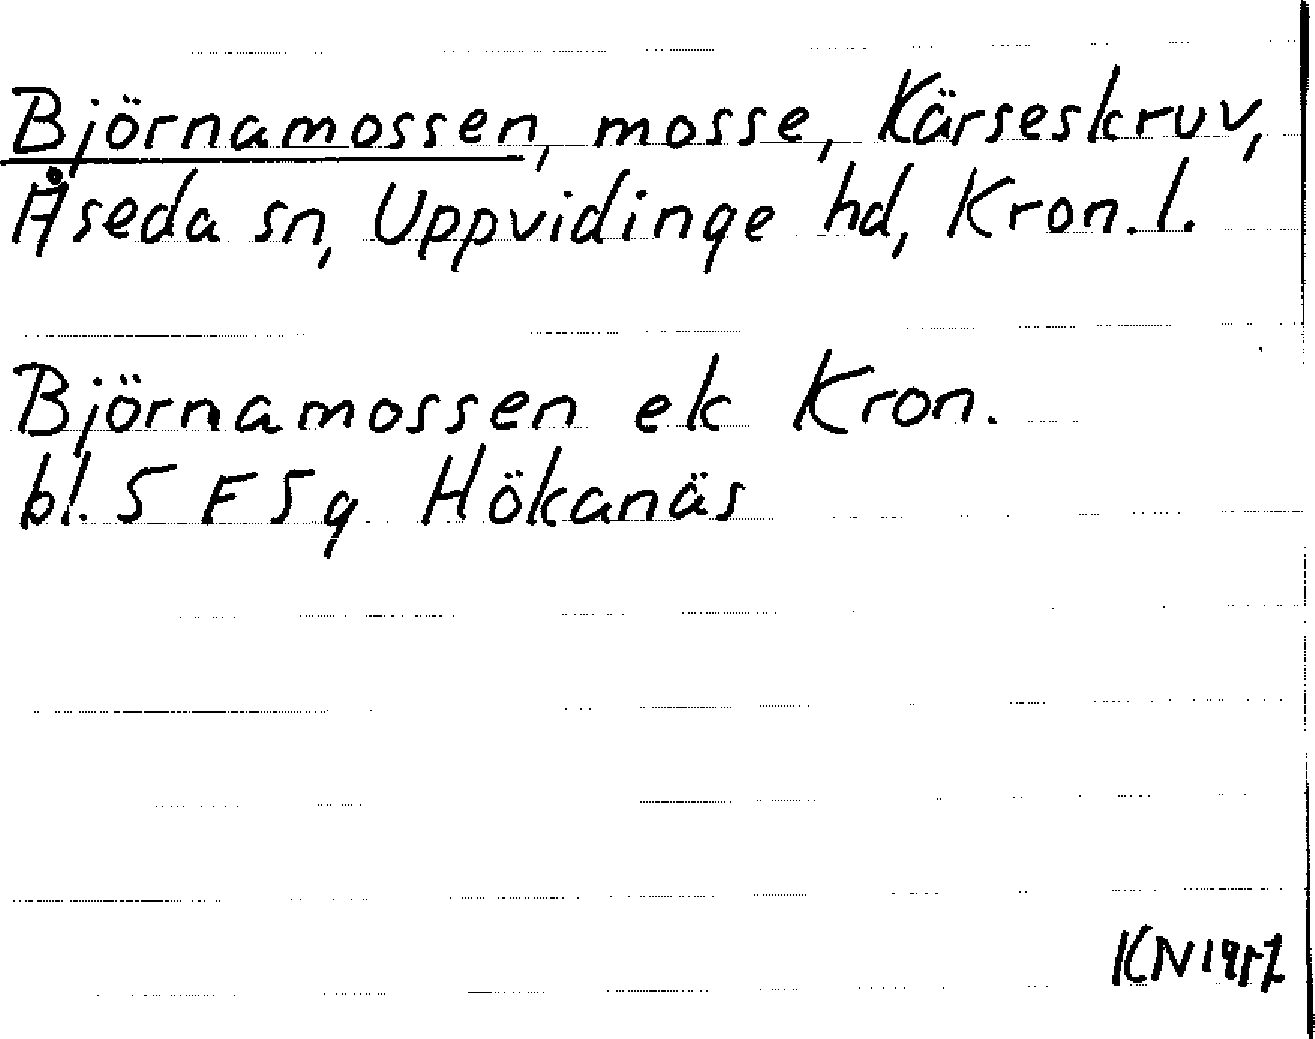 Björnamossen, mosse, Kärseskruv,
Åseda sn, Uppvidinge hd, Kron. l.
Björnamossen ek Kron.
bl. 5 F 5 g Hökanäs
KN 1957